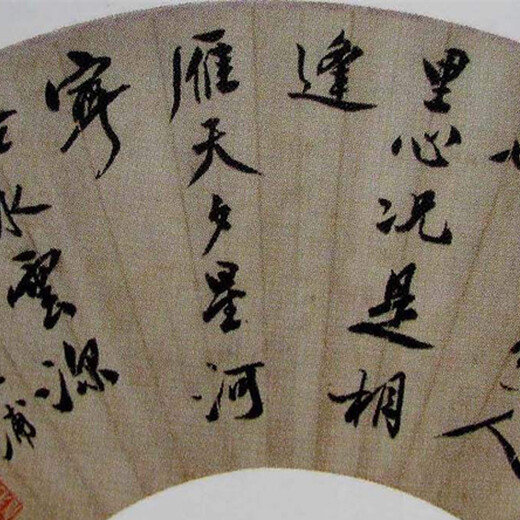 人
里心况是相
逢
雁天夕星河
水雲深
甫